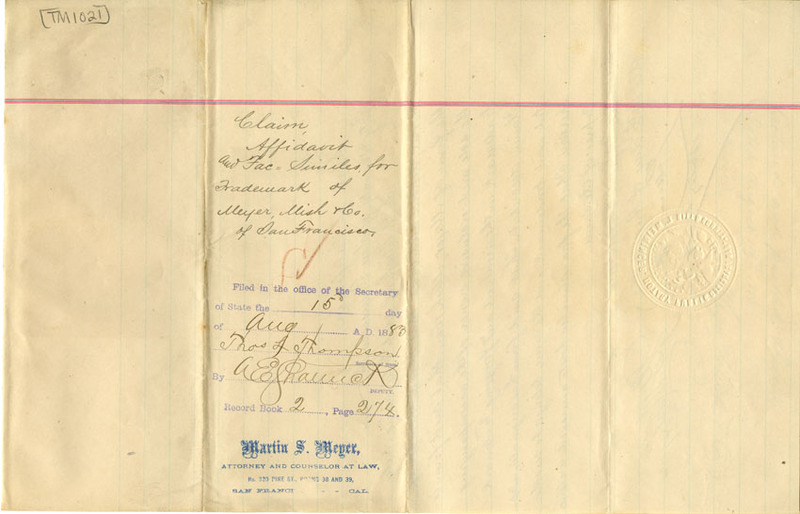 [TM1021]
Claim,
Affidavit
and Fac-Similes, for
Trademark of
Meyer, Mish & Co.
of San Francisco,
Filed in the office of the Secretary
of State the 15 day
of Aug A.D. 1883
Thos L Thompson
Secretary of State
By
DEPUTY.
Record Book 2, Page 274.
Martin S. Meyer,
ATTORNEY AND COUNSELOR AT LAW,
No. 329 PINE St., ROOMS 38 AND 39,
SAN FRANCI - - CAL.